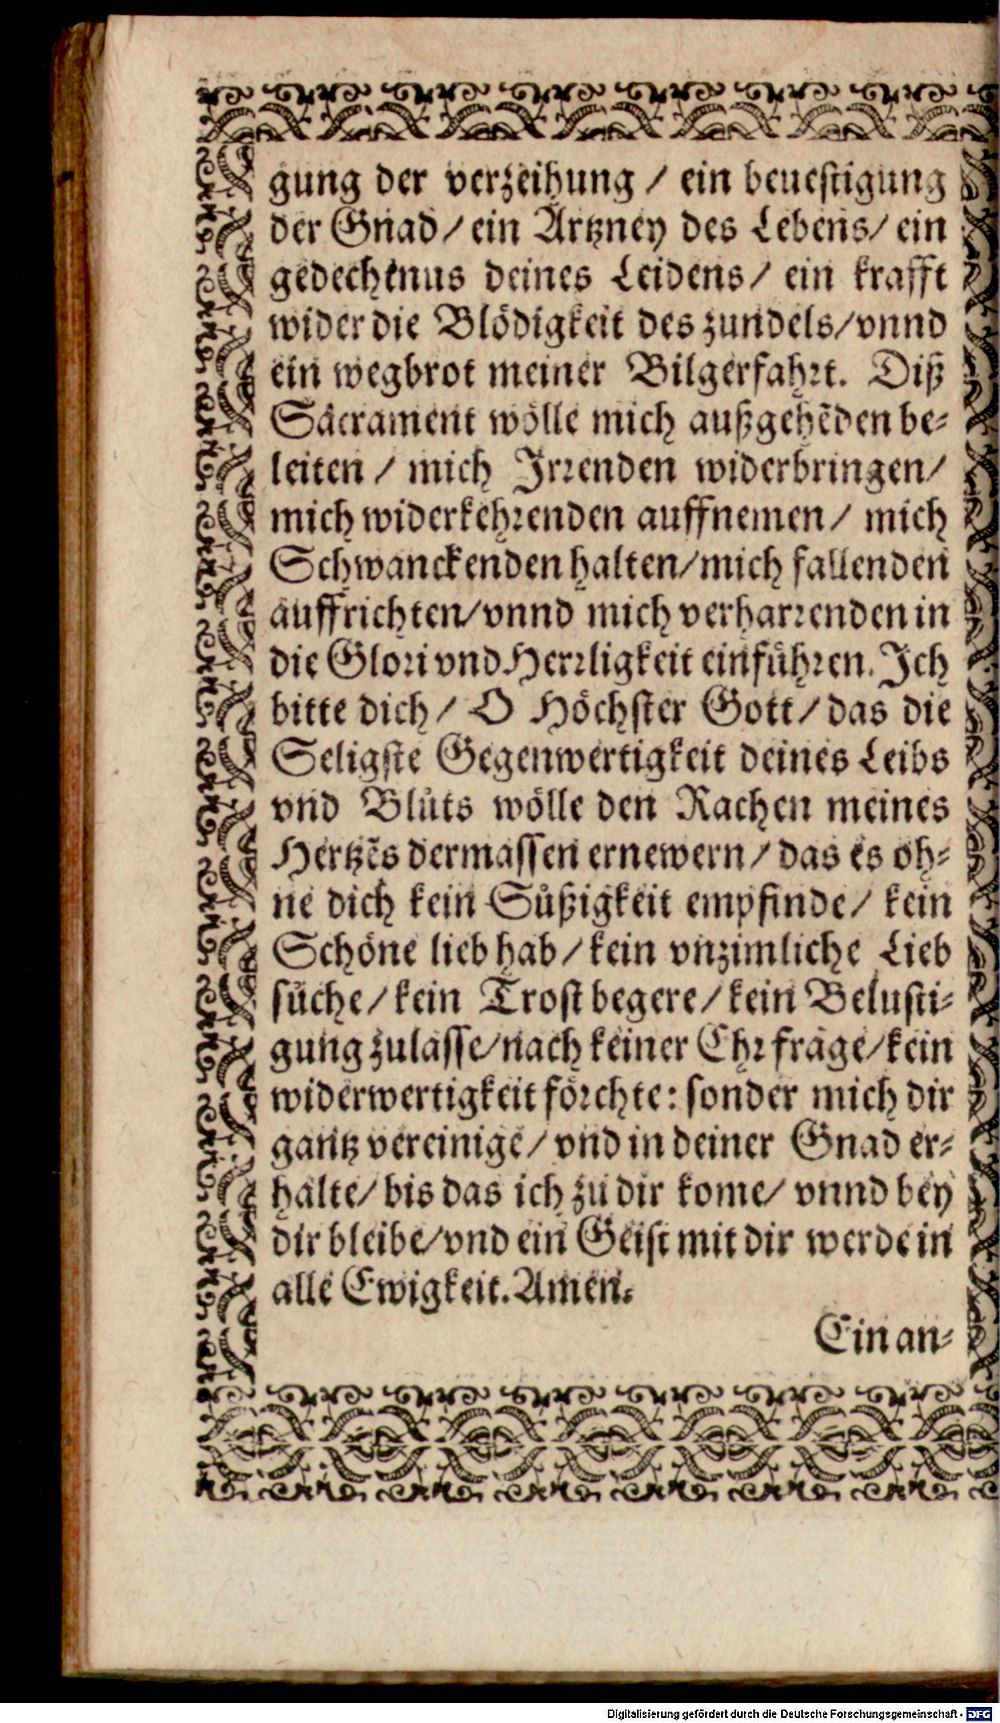 gung der verzeihung / ein beuestigung
der Gnad / ein Artzney des Lebens / ein
gedechtnus deines Leidens / ein krafft
wider die Blödigkeit des zundels / vnnd
ein wegbrot meiner Bilgerfahrt. Diß
Sacrament wölle mich außgehẽden be-
leiten / mich Irrenden widerbringen /
mich widerkehrenden auffnemen / mich
Schwanckenden halten / mich fallenden
auffrichten / vnnd mich verharrenden in
die Glori vnd Herrligkeit einführen. Ich
bitte dich / O Höchster Gott / das die
Seligste Gegenwertigkeit deines Leibs
vnd Blůts wölle den Rachen meines
Hertzẽs dermassen ernewern / das es oh-
ne dich kein Süßigkeit empfinde / kein
Schöne lieb hab / kein vnzimliche Lieb
sůche / kein Trost begere / kein Belusti-
gung zulasse / nach keiner Ehr frage / kein
widerwertigkeit förchte: sonder mich dir
gantz vereinige / vnd in deiner Gnad er-
halte / bis das ich zů dir kome / vnnd bey
dir bleibe / vnd ein Geist mit dir werde in
alle Ewigkeit. Amen.
Ein an-
Digitalisierung gefördert durch die Deutsche Forschungsgemeinschaft - DFG